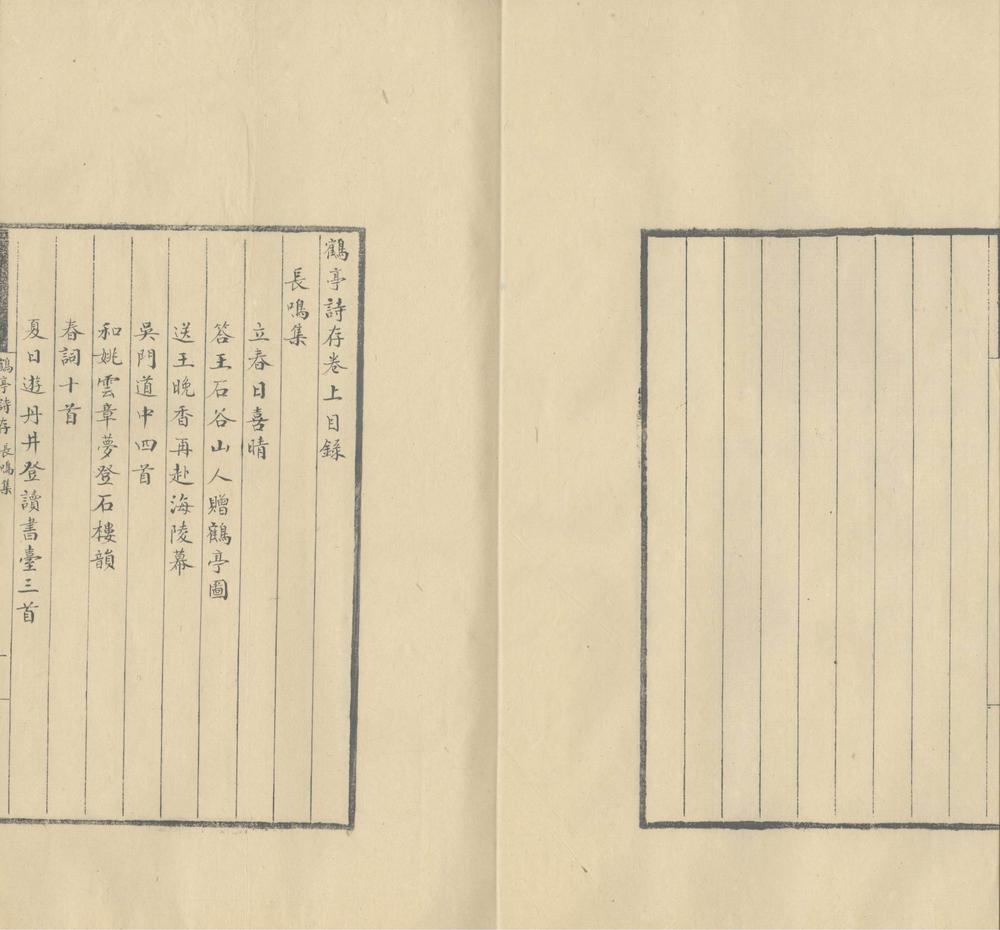 鶴亭詩存卷上目錄
長鳴集
立春日喜晴
答王石谷山人贈鶴亭圖
送王晚香再赴海陵幕
吳門道中四首
和姚雲章夢登石樓韻
春詞十首
夏日遊丹井登讀書臺三首
鶴亭詩存 長鳴集